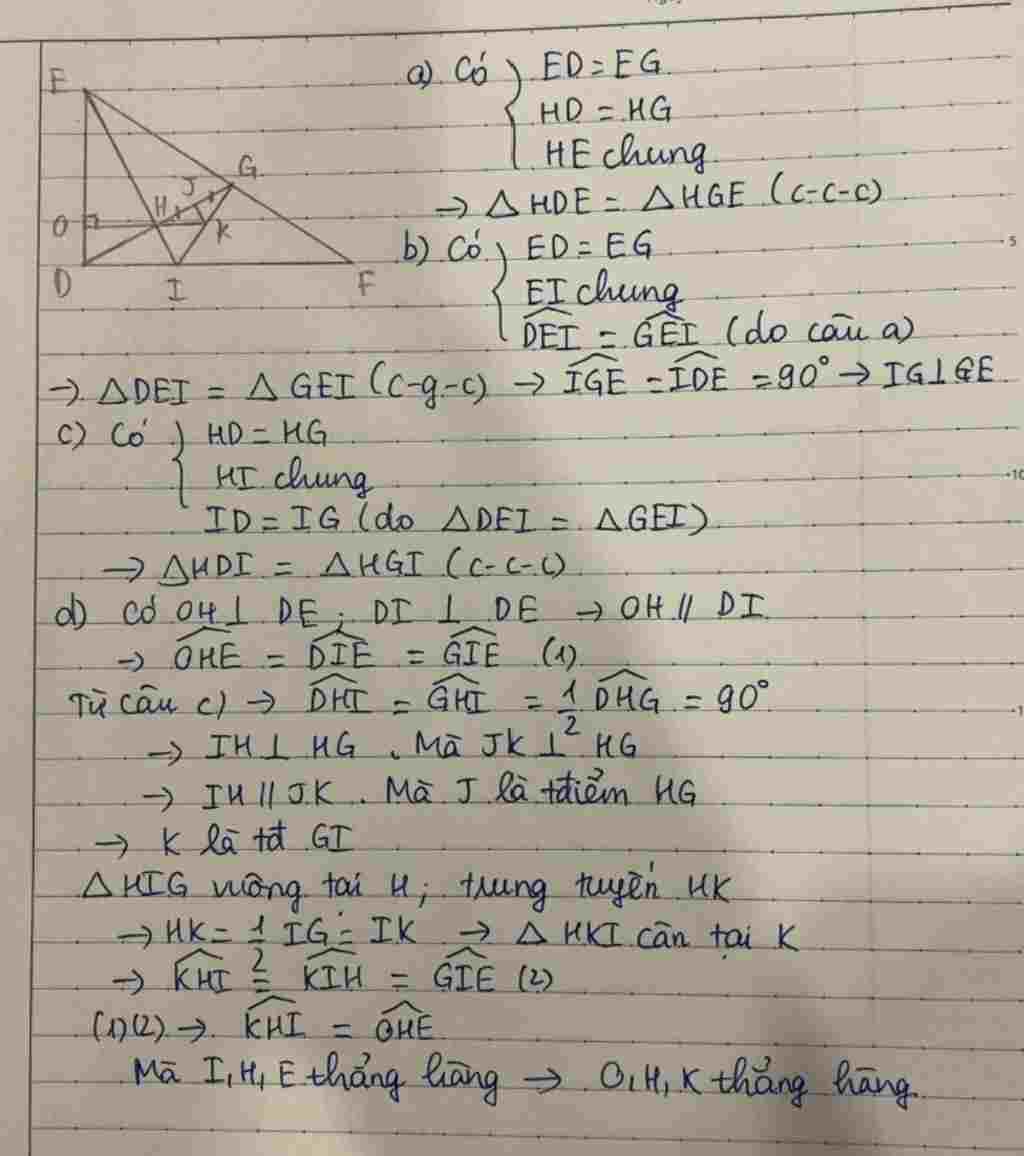 E
G
J
H
O
K
D
I
F
a) Có { ED = EG
HD = HG
HE chung
→ △HDE = △HGE (c-c-c)
b) Có { ED = EG
EI chung
\widehat{DEI} = \widehat{GEI} (do câu a)
→ △DEI = △GEI (c-g-c) → \widehat{IGE} = \widehat{IDE} = 90° → IG⊥GE
c) Có { HD = HG
HI chung
ID = IG (do △DEI = △GEI)
→ △HDI = △HGI (c-c-c)
d) Có OH ⊥ DE; DI ⊥ DE → OH // DI
→ \widehat{OHE} = \widehat{DIE} = \widehat{GIE} (1)
Từ câu c) → \widehat{DHI} = \widehat{GHI} = \frac{1}{2} \widehat{DHG} = 90°
→ IH ⊥ HG. Mà JK ⊥ HG
→ IH // JK. Mà J là tđiểm HG
→ K là tđ GI
△HIG vuông tại H; trung tuyến HK
→ HK = \frac{1}{2} IG = IK → △HKI cân tại K
→ \widehat{KHI} = \widehat{KIH} = \widehat{GIE} (2)
(1)(2) → \widehat{KHI} = \widehat{OHE}
Mà I, H, E thẳng hàng → O, H, K thẳng hàng.
5
10
1